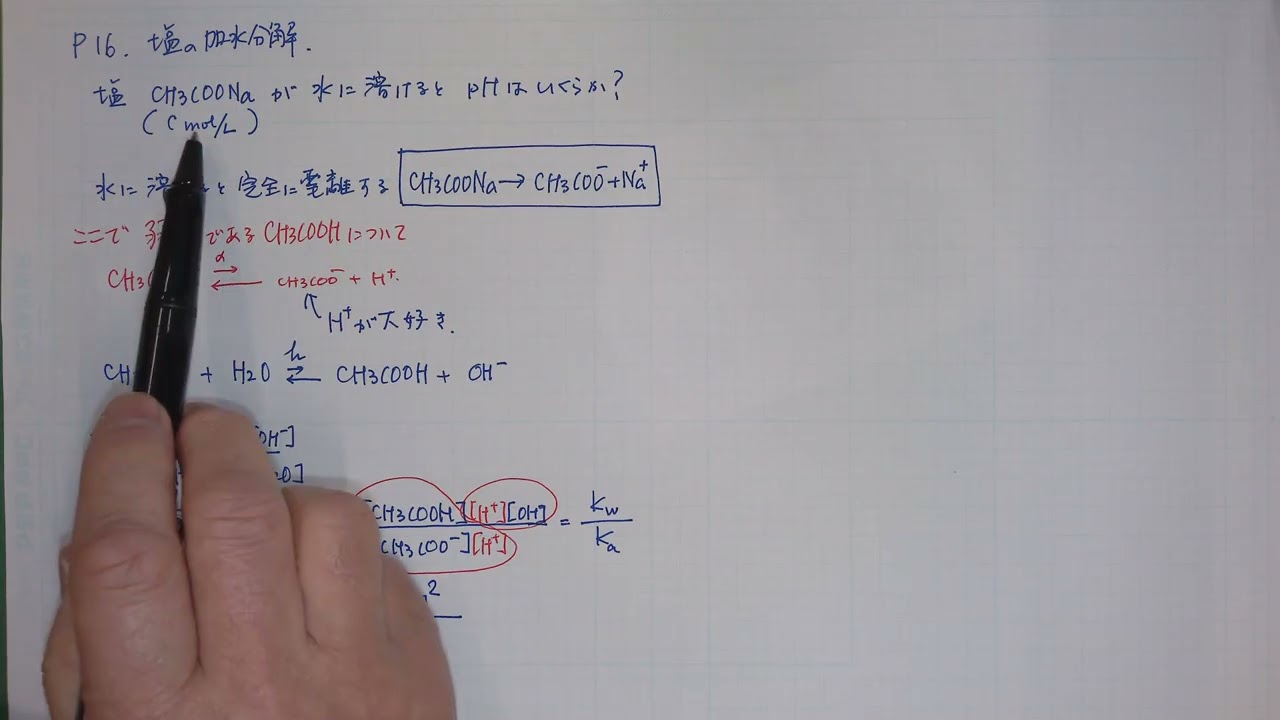 P16. 塩の加水分解.
塩 CH3COONa が 水に溶けると pHはいくらか?
(C mol/L)
水に 溶 と 完全に電離する CH3COONa → CH3COO⁻ + Na⁺
ここで である CH3COOH について
CH3 α ⇄ CH3COO⁻ + H⁺.
↑ H⁺が大好き.
CH + H2O h ⇄ CH3COOH + OH⁻
OH⁻]
O]
[CH3COOH][H⁺][OH⁻] / [CH3COO⁻][H⁺] = Kw / Ka
2